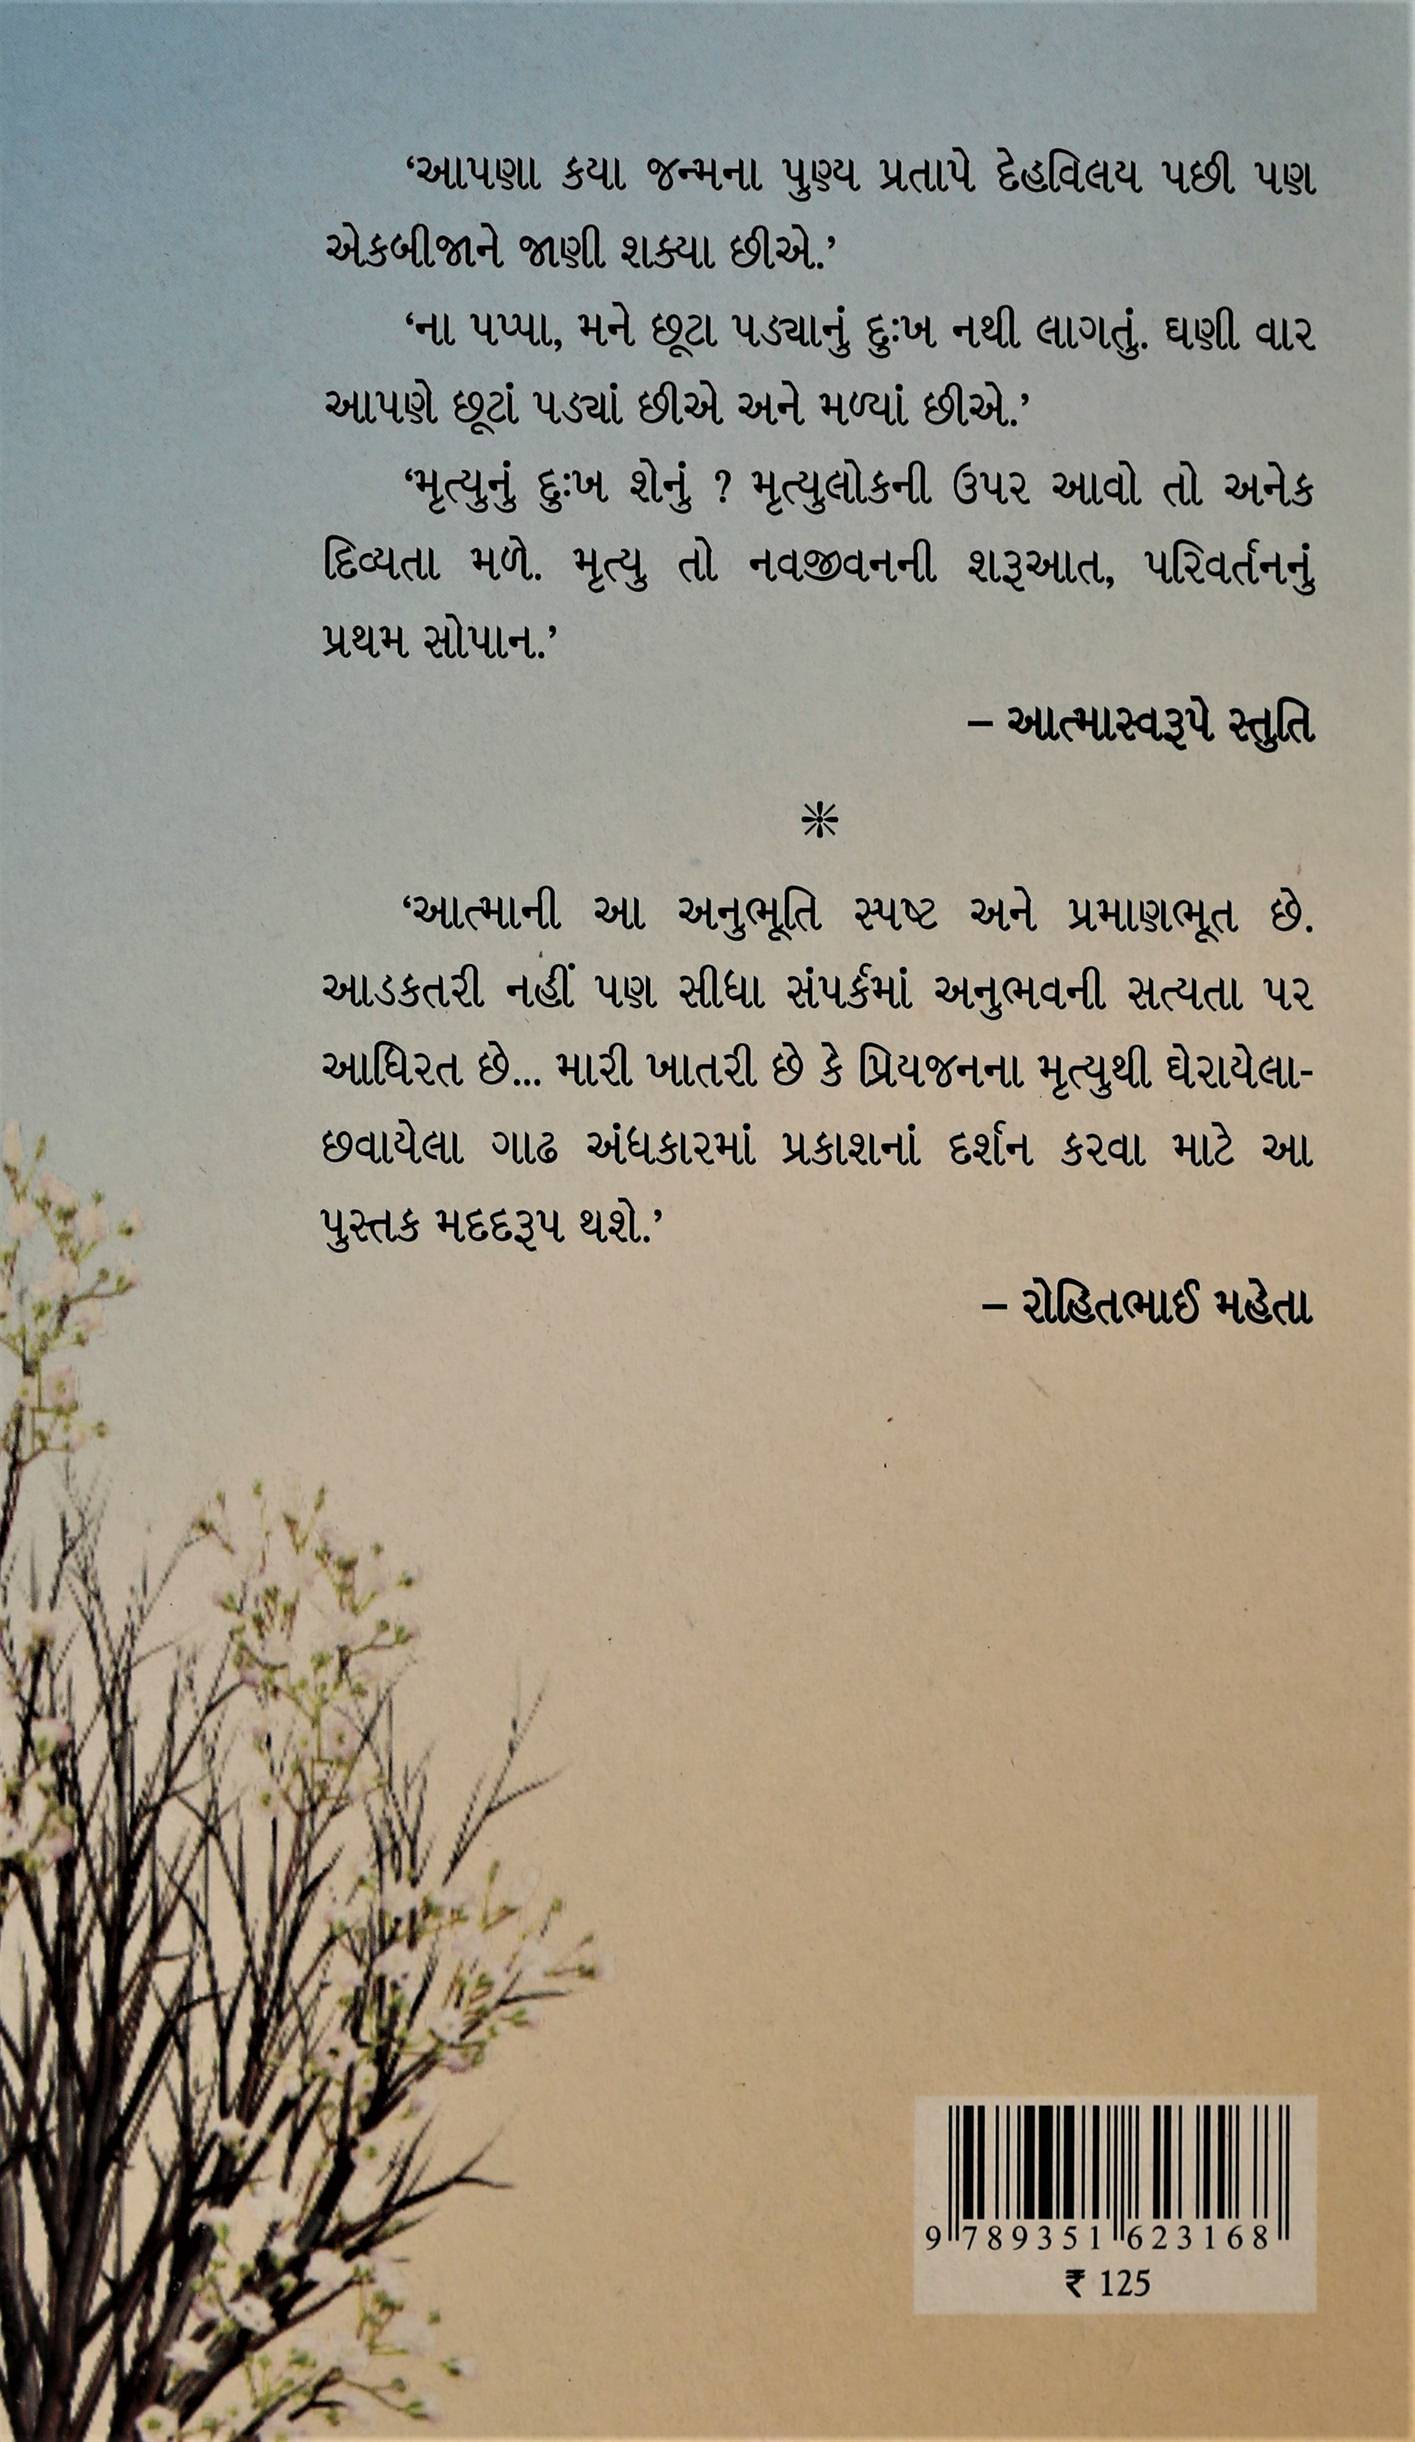 ‘આપણા કયા જન્મના પુણ્ય પ્રતાપે દેહવિલય પછી પણ
એકબીજાને જાણી શક્યા છીએ.’
‘ના પપ્પા, મને છૂટા પડ્યાનું દુઃખ નથી લાગતું. ઘણી વાર
આપણે છૂટાં પડ્યાં છીએ અને મળ્યાં છીએ.’
‘મૃત્યુનું દુઃખ શેનું ? મૃત્યુલોકની ઉપર આવો તો અનેક
દિવ્યતા મળે. મૃત્યુ તો નવજીવનની શરૂઆત, પરિવર્તનનું
પ્રથમ સોપાન.’
– આત્માસ્વરૂપે સ્તુતિ
‘આત્માની આ અનુભૂતિ સ્પષ્ટ અને પ્રમાણભૂત છે.
આડકતરી નહીં પણ સીધા સંપર્કમાં અનુભવની સત્યતા પર
આધિરત છે... મારી ખાતરી છે કે પ્રિયજનના મૃત્યુથી ઘેરાયેલા-
છવાયેલા ગાઢ અંધકારમાં પ્રકાશનાં દર્શન કરવા માટે આ
પુસ્તક મદદરૂપ થશે.’
– રોહિતભાઈ મહેતા
9 789351 623168
₹ 125